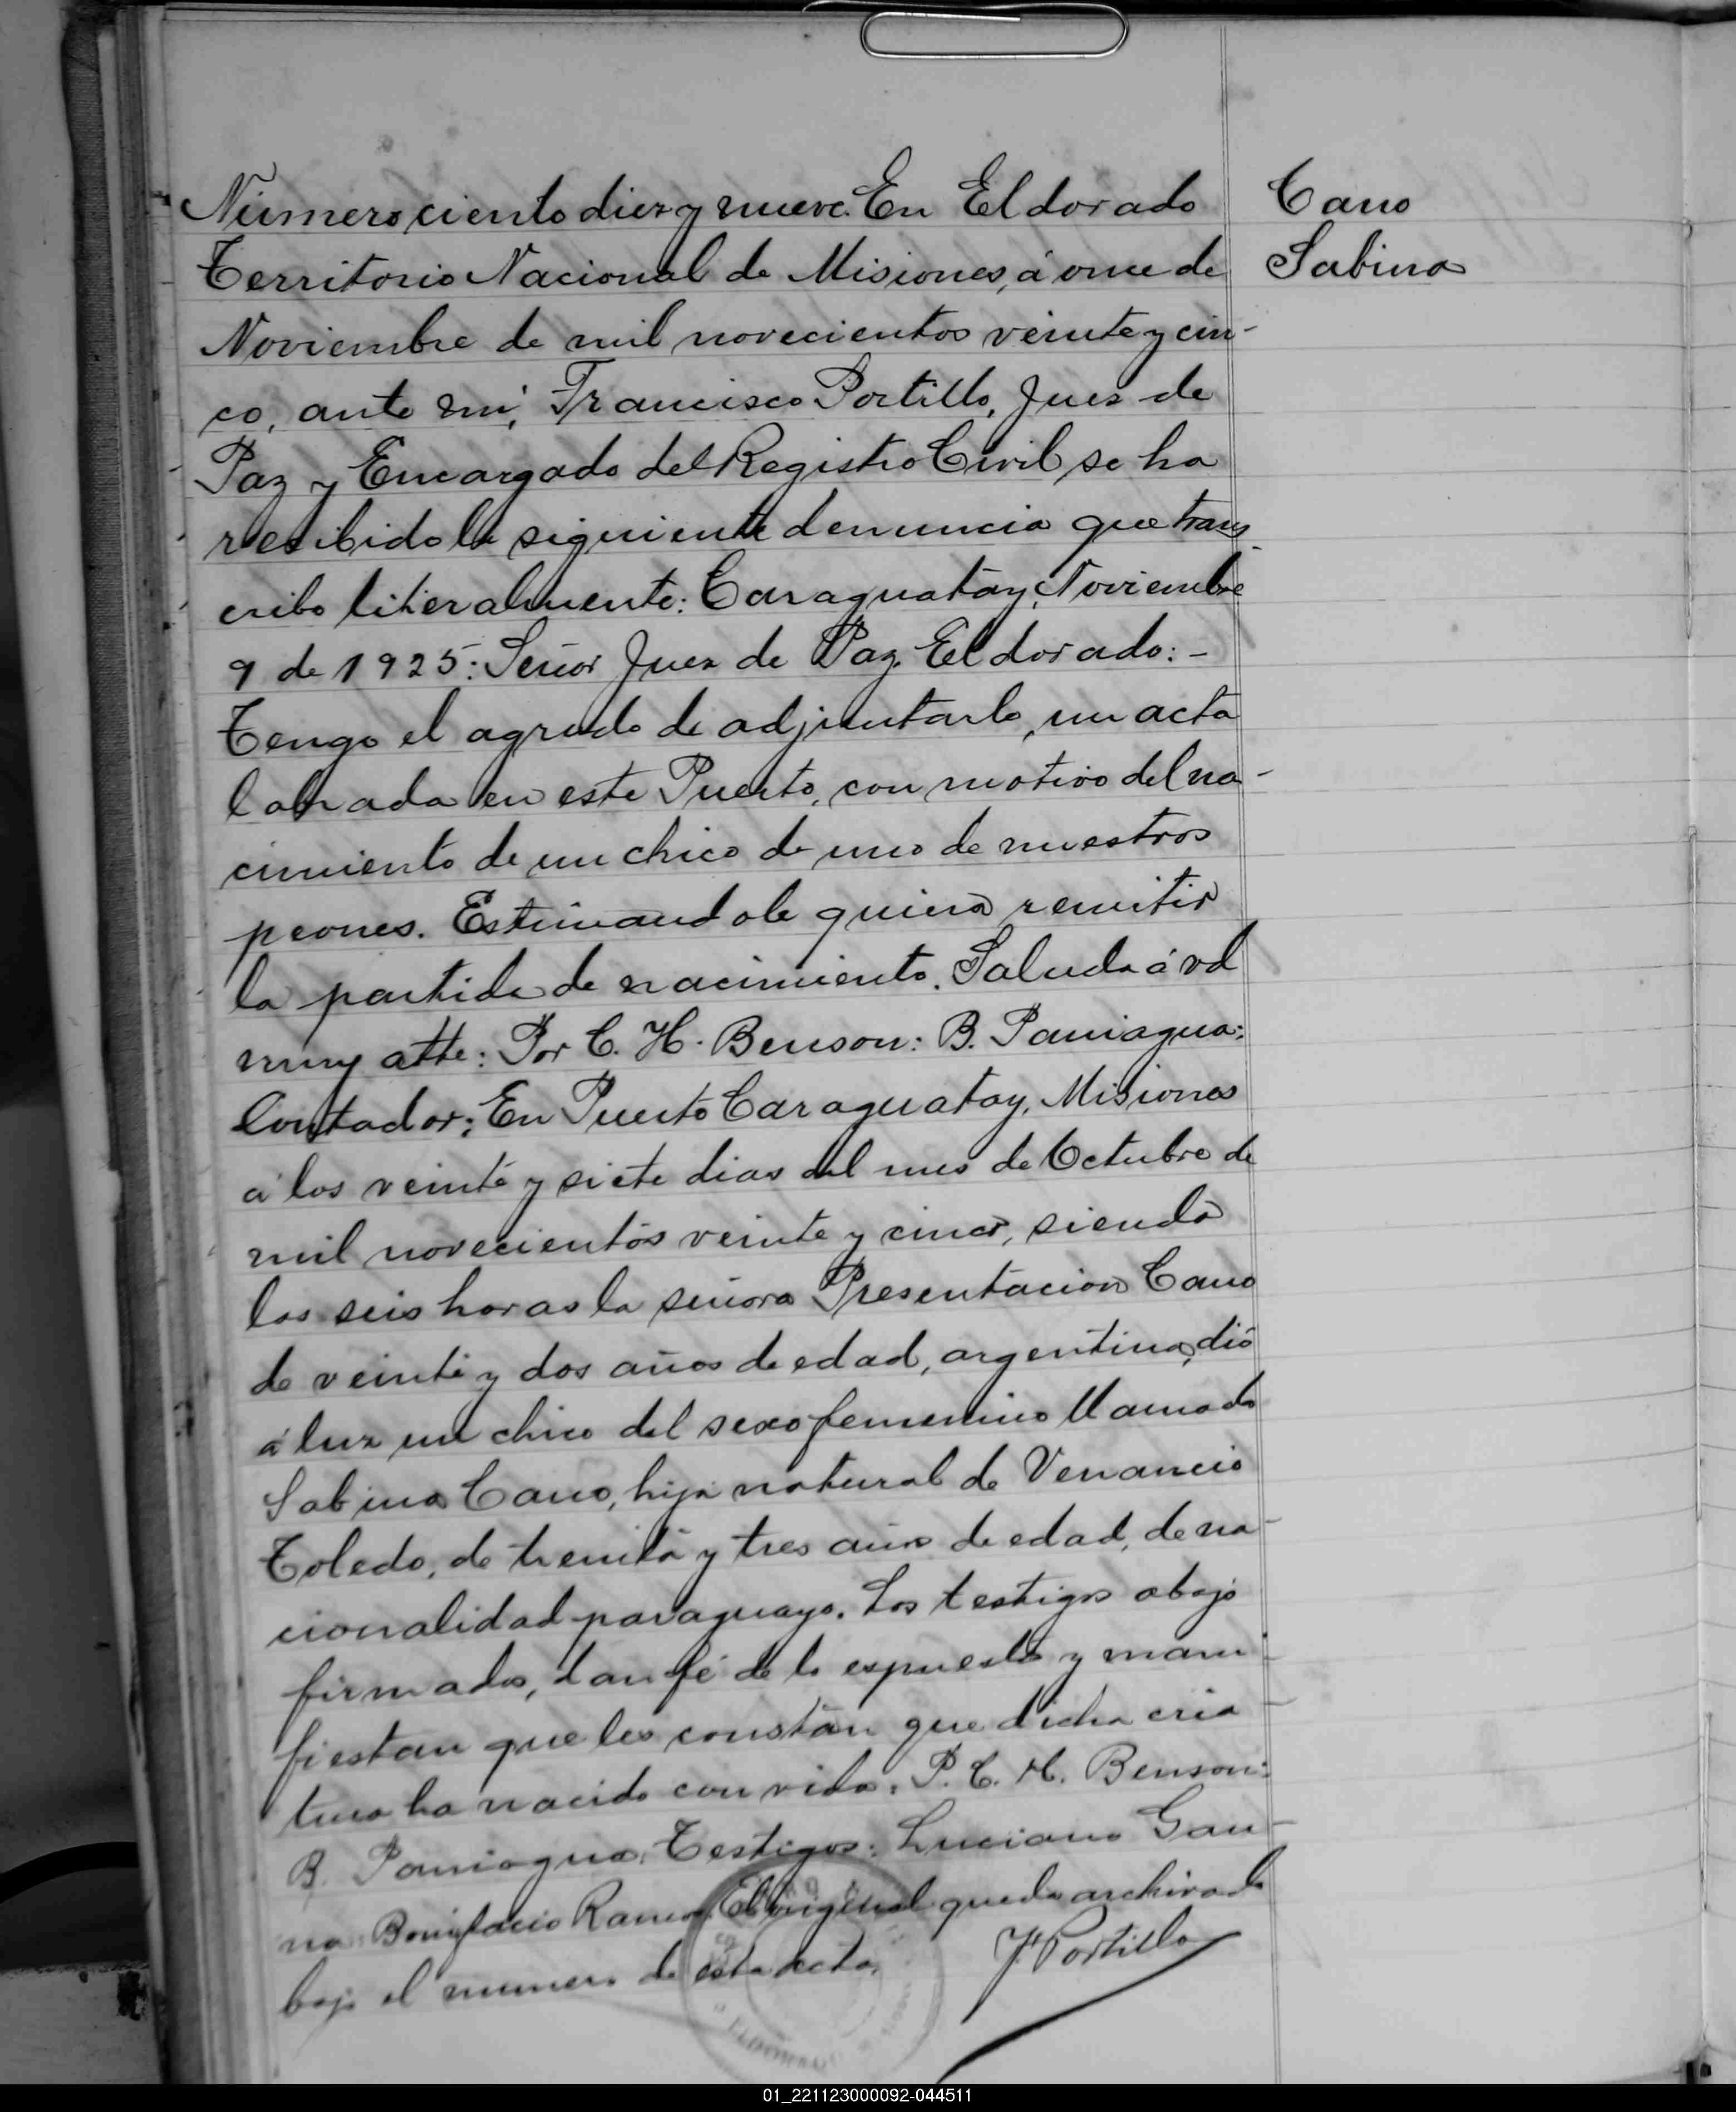 Número ciento diez y nueve. En Eldorado
Territorio Nacional de Misiones, á once de
Noviembre de mil novecientos veinte y cin-
co, ante mi, Francisco Portillo, Juez de
Paz y Encargado del Registro Civil se ha
recibido la siguiente denuncia que trans
cribo literalmente: Caraguatay, Noviembre
9 de 1925: Señor Juez de Paz. Eldorado: -
Tengo el agrado de adjuntarle, un acta
labrada en este Puerto, con motivo del na-
cimiento de un chico de uno de nuestros
peones. Estimandole quiera remitir
la partida de nacimiento. Saluda á vd
muy atte: Por C. H. Benson: B. Paniagua:
Contador: En Puerto Caraguatay, Misiones
á los veinte y siete dias del mes de Octubre de
mil novecientos veinte y cinco, siendo
las seis horas la señora Presentacion Cano
de veinte y dos años de edad, argentina, dió
á luz un chico del sexo femenino llamado
Sabina Cano, hija natural de Venancio
Toledo, de treinta y tres años de edad, de na-
cionalidad paraguayo. Los testigos abajo
firmados, dan fé de lo espuesto y mani-
fiestan que les constan que dicha cria-
tura ha nacido con vida. P. C. H. Benson:
B. Paniagua. Testigos: Luciano Gau-
na: Bonifacio Ramos. El original queda archivado
bajo el numero de esta acta.
F. Portillo
ELDORADO
Cano
Sabina
01_221123000092-044511